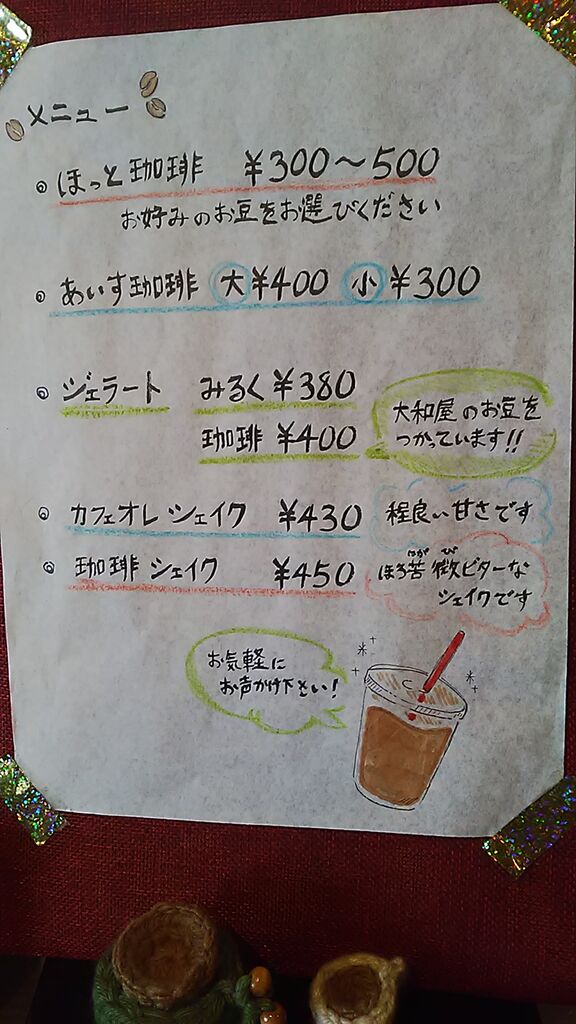 メニュー
ほっと珈琲 ¥300〜500
お好みのお豆をお選びください
あいす珈琲 大¥400 小¥300
ジェラート みるく¥380
珈琲¥400
大和屋のお豆を
つかっています!!
カフェオレシェイク ¥430
程良い甘さです
珈琲シェイク ¥450
にが び
ほろ苦微ビターな
シェイクです
お気軽に
お声かけ下さい!